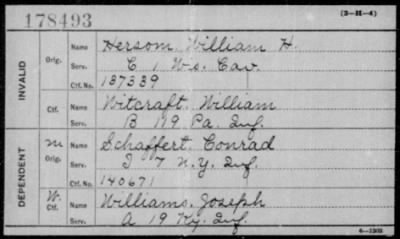 178493
(3-H-4)
INVALID
Orig. Name Hersom, William H.
Serv. C 1 Wis. Cav.
Ctf. No. 137339
Ctf. Name Witcraft, William
Serv. B 119 Pa. Inf.
DEPENDENT
M Orig. Name Schaffert, Conrad
Serv. I 7 N.Y. Inf.
Ctf. No. 140671
W. Ctf. Name Williams, Joseph
Serv. A 19 Ky. Inf.
6-1303